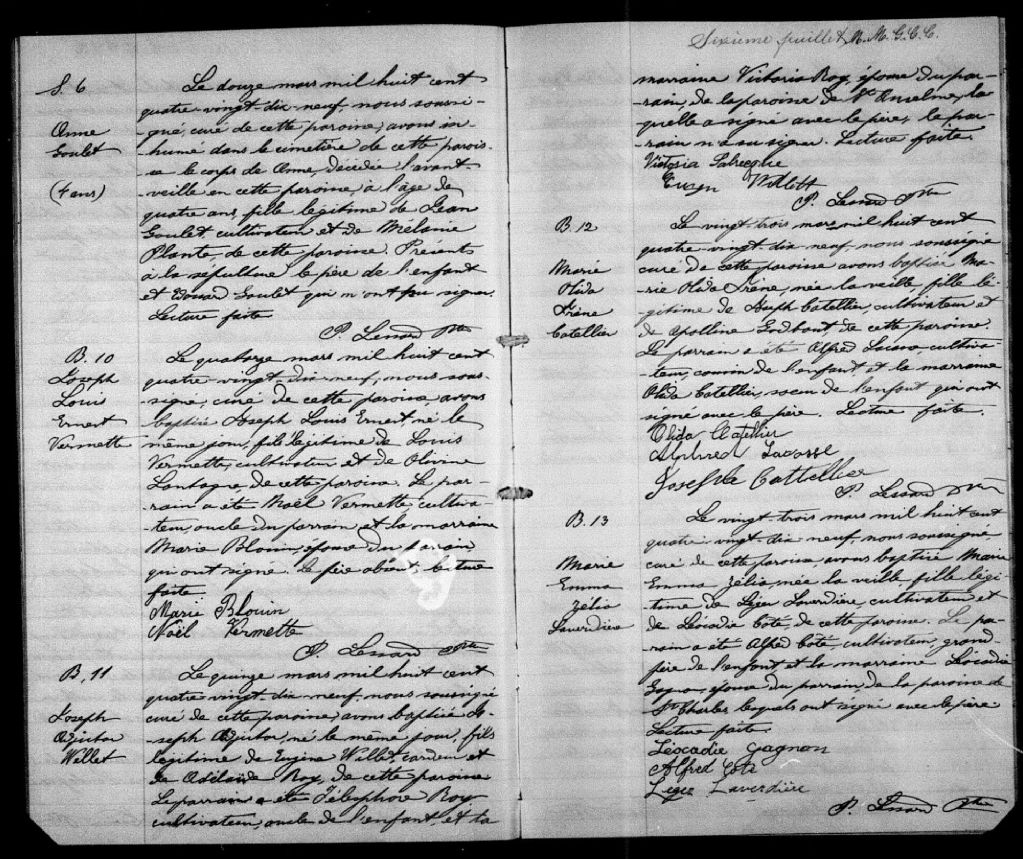 S. 6
Anne
Goulet
(4 ans)
Le douze mars mil huit cent
quatre-vingt dix-neuf, nous soussi-
gné, curé de cette paroisse, avons in-
humé dans le cimetière de cette parois-
se le corps de Anne, décédée l'avant-
veille en cette paroisse, à l'âge de
quatre ans, fille légitime de Jean
Goulet cultivateur et de Mélanie
Plante, de cette paroisse. Présents
à la sépulture le père de l'enfant
et Edouard Goulet qui n'ont su signer.
Lecture faite
P. Lessard Ptre
B. 10
Joseph
Louis
Ernest
Vermette
Le quatorze mars mil huit cent
quatre-vingt-dix-neuf, nous sous-
signé, curé de cette paroisse, avons
baptisé Joseph Louis Ernest, né le
même jour, fils légitime de Louis
Vermette, cultivateur et de Olivine
Lantagne, de cette paroisse. Le par-
rain a été Noël Vermette, cultiva-
teur, oncle du parrain et la marraine
Marie Blouin, épouse du parrain,
qui ont signé. Le père absent. Lecture
faite
Marie Blouin
Noël Vermette
P. Lessard Ptre
B. 11
Joseph
Willet
Le quinze mars mil huit cent
quatre vingt dix-neuf, nous soussigné
curé de cette paroisse, avons baptisé Jo-
seph né le même jour, fils
légitime de Eugène Willet, et
de Adélaïde Roy, de cette paroisse
Le parrain a été Télesphore Roy
cultivateur, oncle de l'enfant, et la
Sixième feuillet M. G. C. C.
marraine Victoria Roy, épouse du par-
rain, de la paroisse de St Anselme, la-
quelle a signé avec le père, le par-
rain n'a su signer. Lecture faite.
Victoria
Eugen Willett
P. Lessard Ptre
B. 12
Marie
Olida
Irène
Catellier
Le vingt-trois mars mil huit cent
quatre-vingt dix-neuf, nous soussigné
curé de cette paroisse avons baptisé Ma-
rie Olida Irène, née la veille, fille lé-
gitime de Joseph Catellier, cultivateur et
de Apolline Godbout de cette paroisse.
Le parrain a été Alfred Lacasse, cultiva-
teur, cousin de l'enfant et la marraine
Olida Catellier, soeur de l'enfant qui ont
signé avec le père. Lecture faite.
Olida Catellier
Alphred Lacasse
Joseph Cattellier
P. Lessard Ptre
B. 13
Marie
Emma
Zélia
Laverdière
Le vingt trois mars mil huit cent
quatre-vingt dix-neuf, nous soussigné
curé de cette paroisse, avons baptisé Marie
Emma Zélia, née la veille, fille légi-
time de Léger Laverdière, cultivateur et
de Léocadie Coté de cette paroisse. Le pa-
rrain a été Alfred Coté, cultivateur, grand-
père de l'enfant et la marraine Léocadie
Gagnon, épouse du parrain, de la paroisse de
St Charles lesquels ont signé avec le père
Lecture faite.
Léocadie Gagnon
Alfred Coté
Leger Laverdière
P. Lessard Ptre